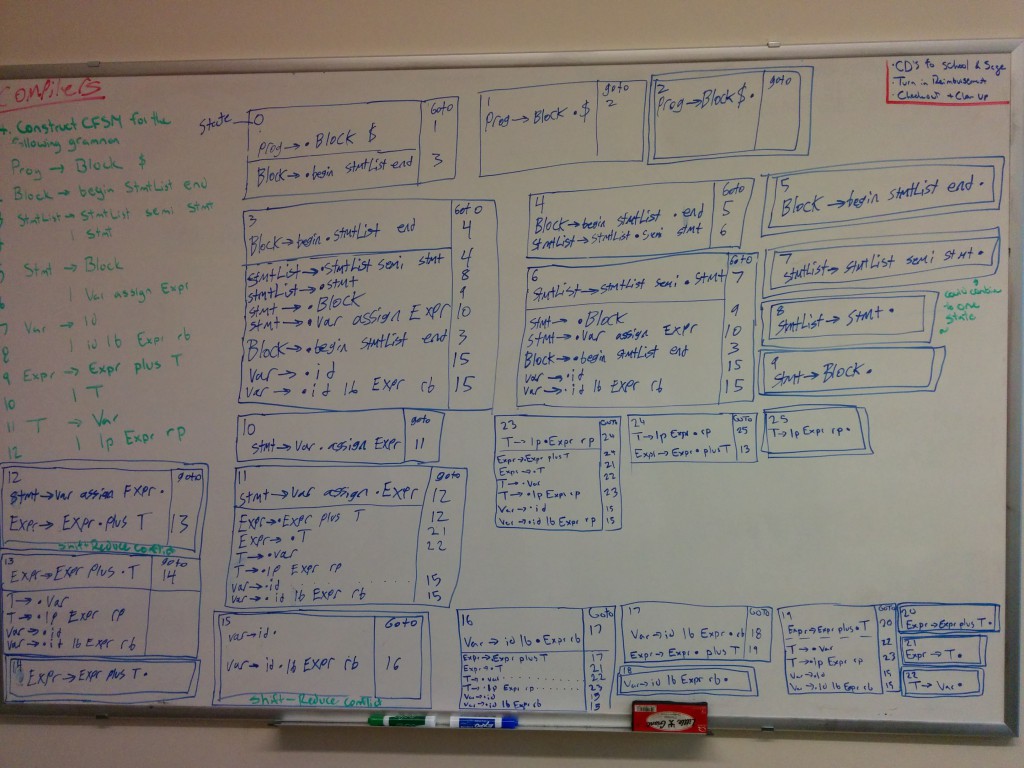 Compilers
4. Construct CFSM for the
following grammar
Prog → Block $
Block → begin StmtList end
StmtList → StmtList semi Stmt
| Stmt
Stmt → Block
| Var assign Expr
7 Var → id
8 | id lb Expr rb
9 Expr → Expr plus T
10 | T
11 T → Var
12 | lp Expr rp
· CD's to School & Sage
· Turn in Reimbursement
· Cleanout + Clean up
State
0 Goto
Prog → • Block $ 1
Block → • begin stmtList end 3
1 goto
Prog → Block • $ 2
2 goto
Prog → Block $ •
3 Goto
Block → begin • stmtList end 4
stmtList → • stmtList semi stmt 4
stmtList → • stmt 8
stmt → • Block 9
stmt → • var assign Expr 10
Block → • begin stmtList end 3
Var → • id 15
var → • id lb Expr rb 15
4 Goto
Block → begin stmtList • end 5
stmtList → stmtList • semi stmt 6
5
Block → begin stmtList end •
6 Goto
stmtList → stmtList semi • stmt 7
stmt → • Block 9
stmt → • var assign Expr 10
Block → • begin stmtList end 3
var → • id 15
var → • id lb Expr rb 15
7
stmtList → stmtList semi stmt •
8
stmtList → stmt •
to one
state
9
stmt → Block •
10 goto
stmt → var • assign Expr 11
11 goto
stmt → var assign • Expr 12
Expr → • Expr plus T 12
Expr → • T 21
T → • var 22
T → • lp Expr rp
var → • id 15
var → • id lb Expr rb 15
12 goto
stmt → var assign Expr •
Expr → Expr • plus T 13
shift-Reduce conflict
13 goto
Expr → Expr plus • T 14
T → • Var
T → • lp Expr rp
Var → • id
var → • id lb Expr rb
14
Expr → Expr plus T •
15 Goto
var → id •
var → id • lb Expr rb 16
Shift-Reduce conflict
16 Goto
Var → id lb • Expr rb 17
Expr → • Expr plus T 17
Expr → • T 21
T → • var 22
T → • lp Expr rp 23
Var → • id 15
Var → • id lb Expr rb 15
17 Goto
Var → id lb Expr • rb 18
Expr → Expr • plus T 19
18
Var → id lb Expr rb •
19 Goto
Expr → Expr plus • T 20
T → • Var 22
T → • lp Expr rp 23
Var → • id 15
Var → • id lb Expr rb 15
20
Expr → Expr plus T •
21
Expr → T •
22
T → Var •
23 Goto
T → lp • Expr rp 24
Expr → • Expr plus T 24
Expr → • T 21
T → • Var 22
T → • lp Expr rp 23
Var → • id 15
Var → • id lb Expr rp 15
24 Goto
T → lp Expr • rp 25
Expr → Expr • plus T 13
25
T → lp Expr rp •